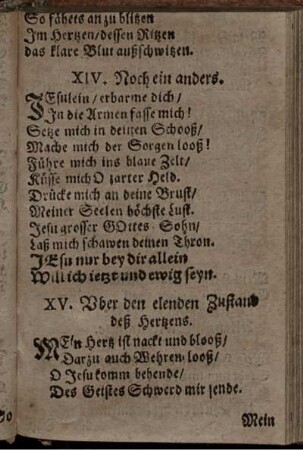 So fähets an zu blitzen
Im Hertzen/dessen Ritzen
das klare Blut außschwitzen.
XIV. Noch ein anders.
JEsulein/erbarme dich/
In die Armen fasse mich!
Setze mich in deinen Schooß/
Mache mich der Sorgen looß!
Führe mich ins blaue Zelt/
Küsse mich O zarter Held.
Drücke mich an deine Brust/
Meiner Seelen höchste Lust.
Jesu grosser GOttes-Sohn/
Laß mich schawen deinen Thron.
JEsu nur bey dir allein
Will ich ietzt und ewig seyn.
XV. Vber den elenden Zustand
deß Hertzens.
MEin Hertz ist nackt und blooß/
Darzu auch Wehren-looß/
O Jesu komm behende/
Des Geistes Schwerd mir sende.
Mein